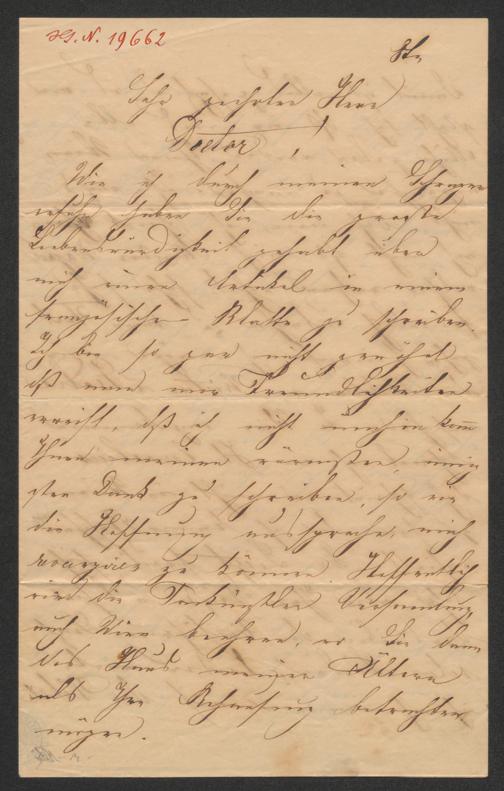 H.I.N. 19662
Sehr geehrter Herr
Doctor!
Wie ich durch meinen Schwager
erfuhr haben Sie die grosse
Liebenswürdigkeit gehabt über
mich einen Artikel in einem
französischen Blatte zu schreiben.
Ich bin so gar nicht gewöhnt
dß man mir Freundlichkeiten
erweist, dß ich nicht umhin kann
Ihnen meinen wärmsten, innig
sten Dank zu schreiben, so wie
die Hoffnung aussprache, mich
zu können. Hoffentlich
wird die Tonkünstler Versamlung
auch Wien beehren, wo Sie dann
das Haus meiner Ältern
als Ihre Behausung betrachten
mögen.